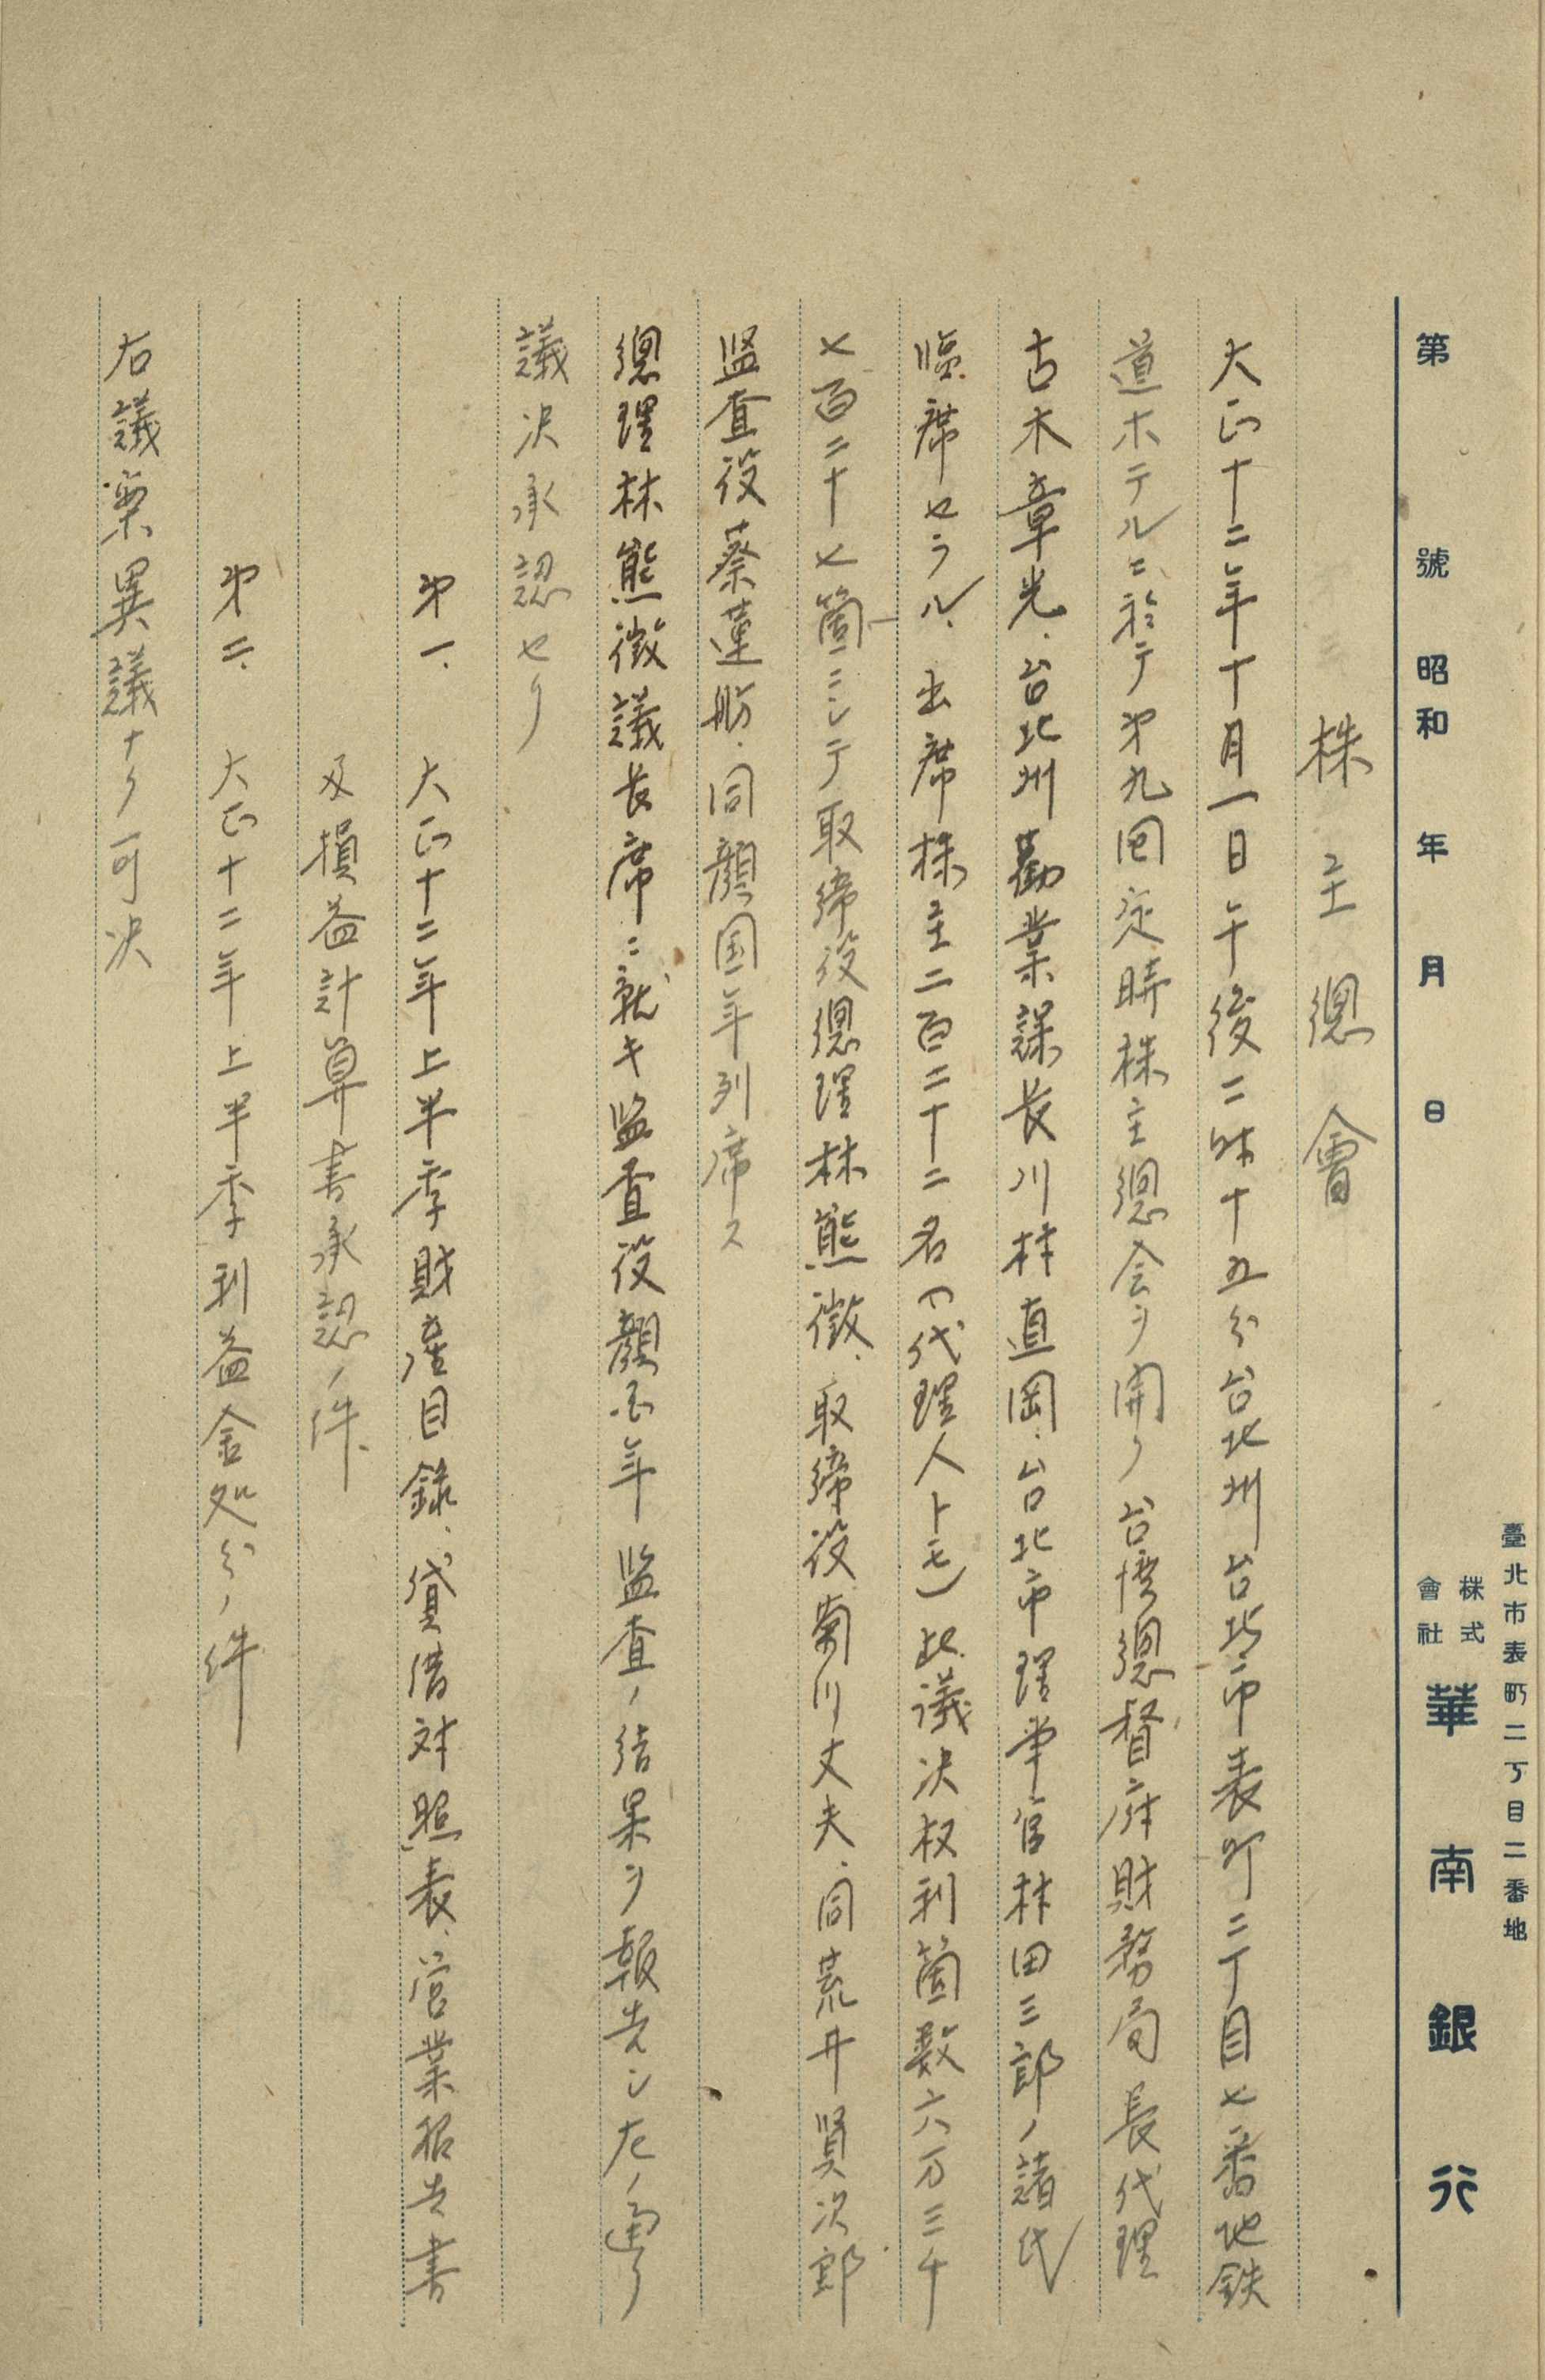 臺北市表町二丁目二番地
第　號　昭和　年　月　日　株式會社　華南銀行
株主總會
大正十二年十月一日午後二時十五分台北州台北市表町二丁目七番地鉄
道ホテルニ於テ第九回定時株主總会ヲ開ク台湾總督府財務局長代理
古木章光、台北州勸業課長川村直岡、台北市理事官林田三郎ノ諸氏
臨席セラル、出席株主二百二十二名(代理人トモ)此議決权利箇数六万三千
七百二十七箇ニシテ取締役總理林熊徴、取締役菊川丈夫、同荒井賢次郎
监査役蔡蓮舫、同顏国年列席ス
總理林熊徴議長席ニ就キ监査役顏国年监査ノ结果ヲ報告シ左ノ通リ
議决承認セリ
第一、大正十二年上半季財産目録、貸借対照表、営業报告書
及損益計算書承認ノ件、
第二、大正十二年上半季利益金処分ノ件
右議案異議ナク可决